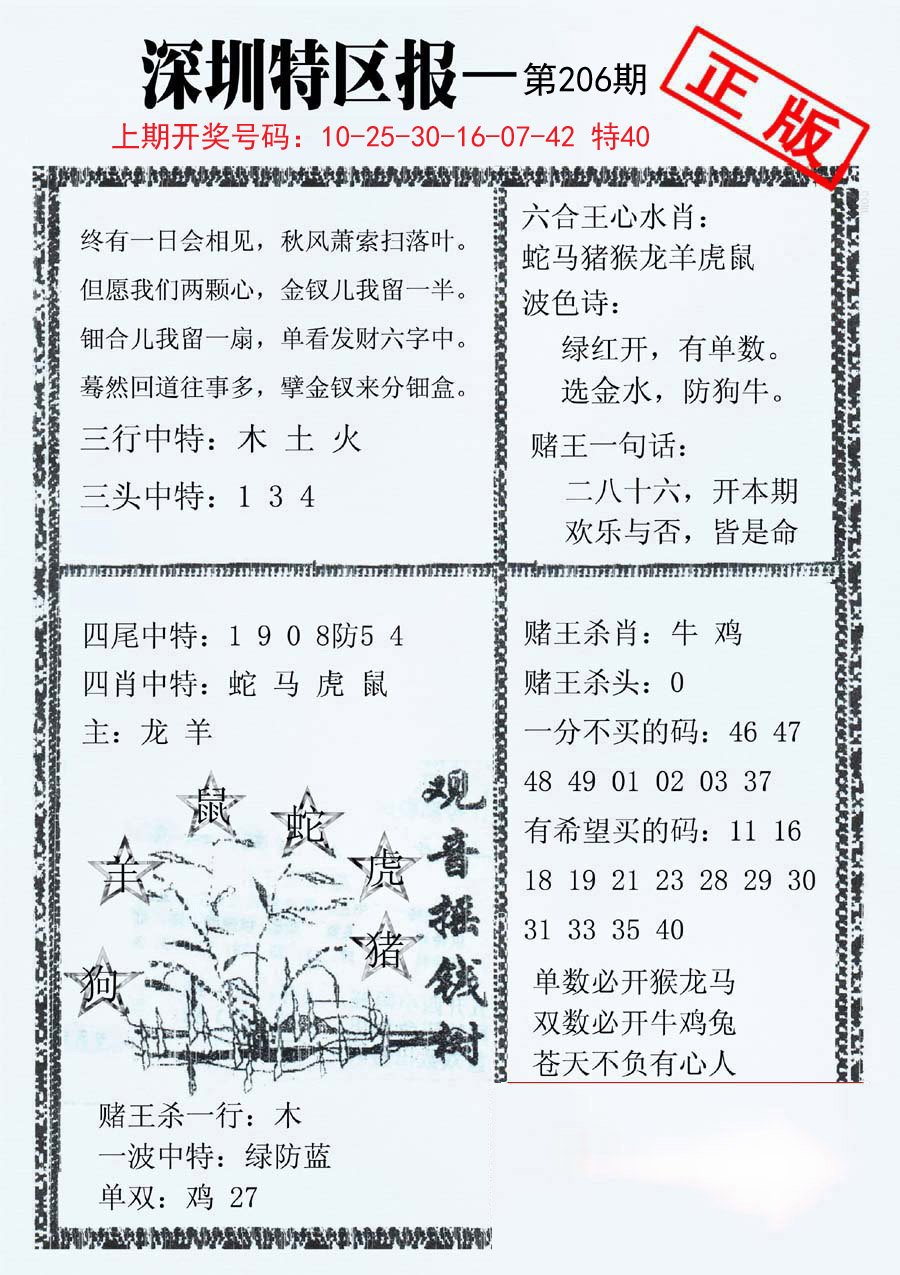 深圳特区报—第206期
正版
上期开奖号码：10-25-30-16-07-42 特40
终有一日会相见，秋风萧索扫落叶。
但愿我们两颗心，金钗儿我留一半。
钿合儿我留一扇，单看发财六字中。
蓦然回道往事多，擘金钗来分钿盒。
三行中特：木 土 火
三头中特：1 3 4
六合王心水肖：
蛇马猪猴龙羊虎鼠
波色诗：
绿红开，有单数。
选金水，防狗牛。
赌王一句话：
二八十六，开本期
欢乐与否，皆是命
四尾中特：1 9 0 8防5 4
四肖中特：蛇 马 虎 鼠
主：龙 羊
鼠
蛇
羊
虎
猪
狗
观音摇钱树
赌王杀一行：木
一波中特：绿防蓝
单双：鸡 27
赌王杀肖：牛 鸡
赌王杀头：0
一分不买的码：46 47
48 49 01 02 03 37
有希望买的码：11 16
18 19 21 23 28 29 30
31 33 35 40
单数必开猴龙马
双数必开牛鸡兔
苍天不负有心人